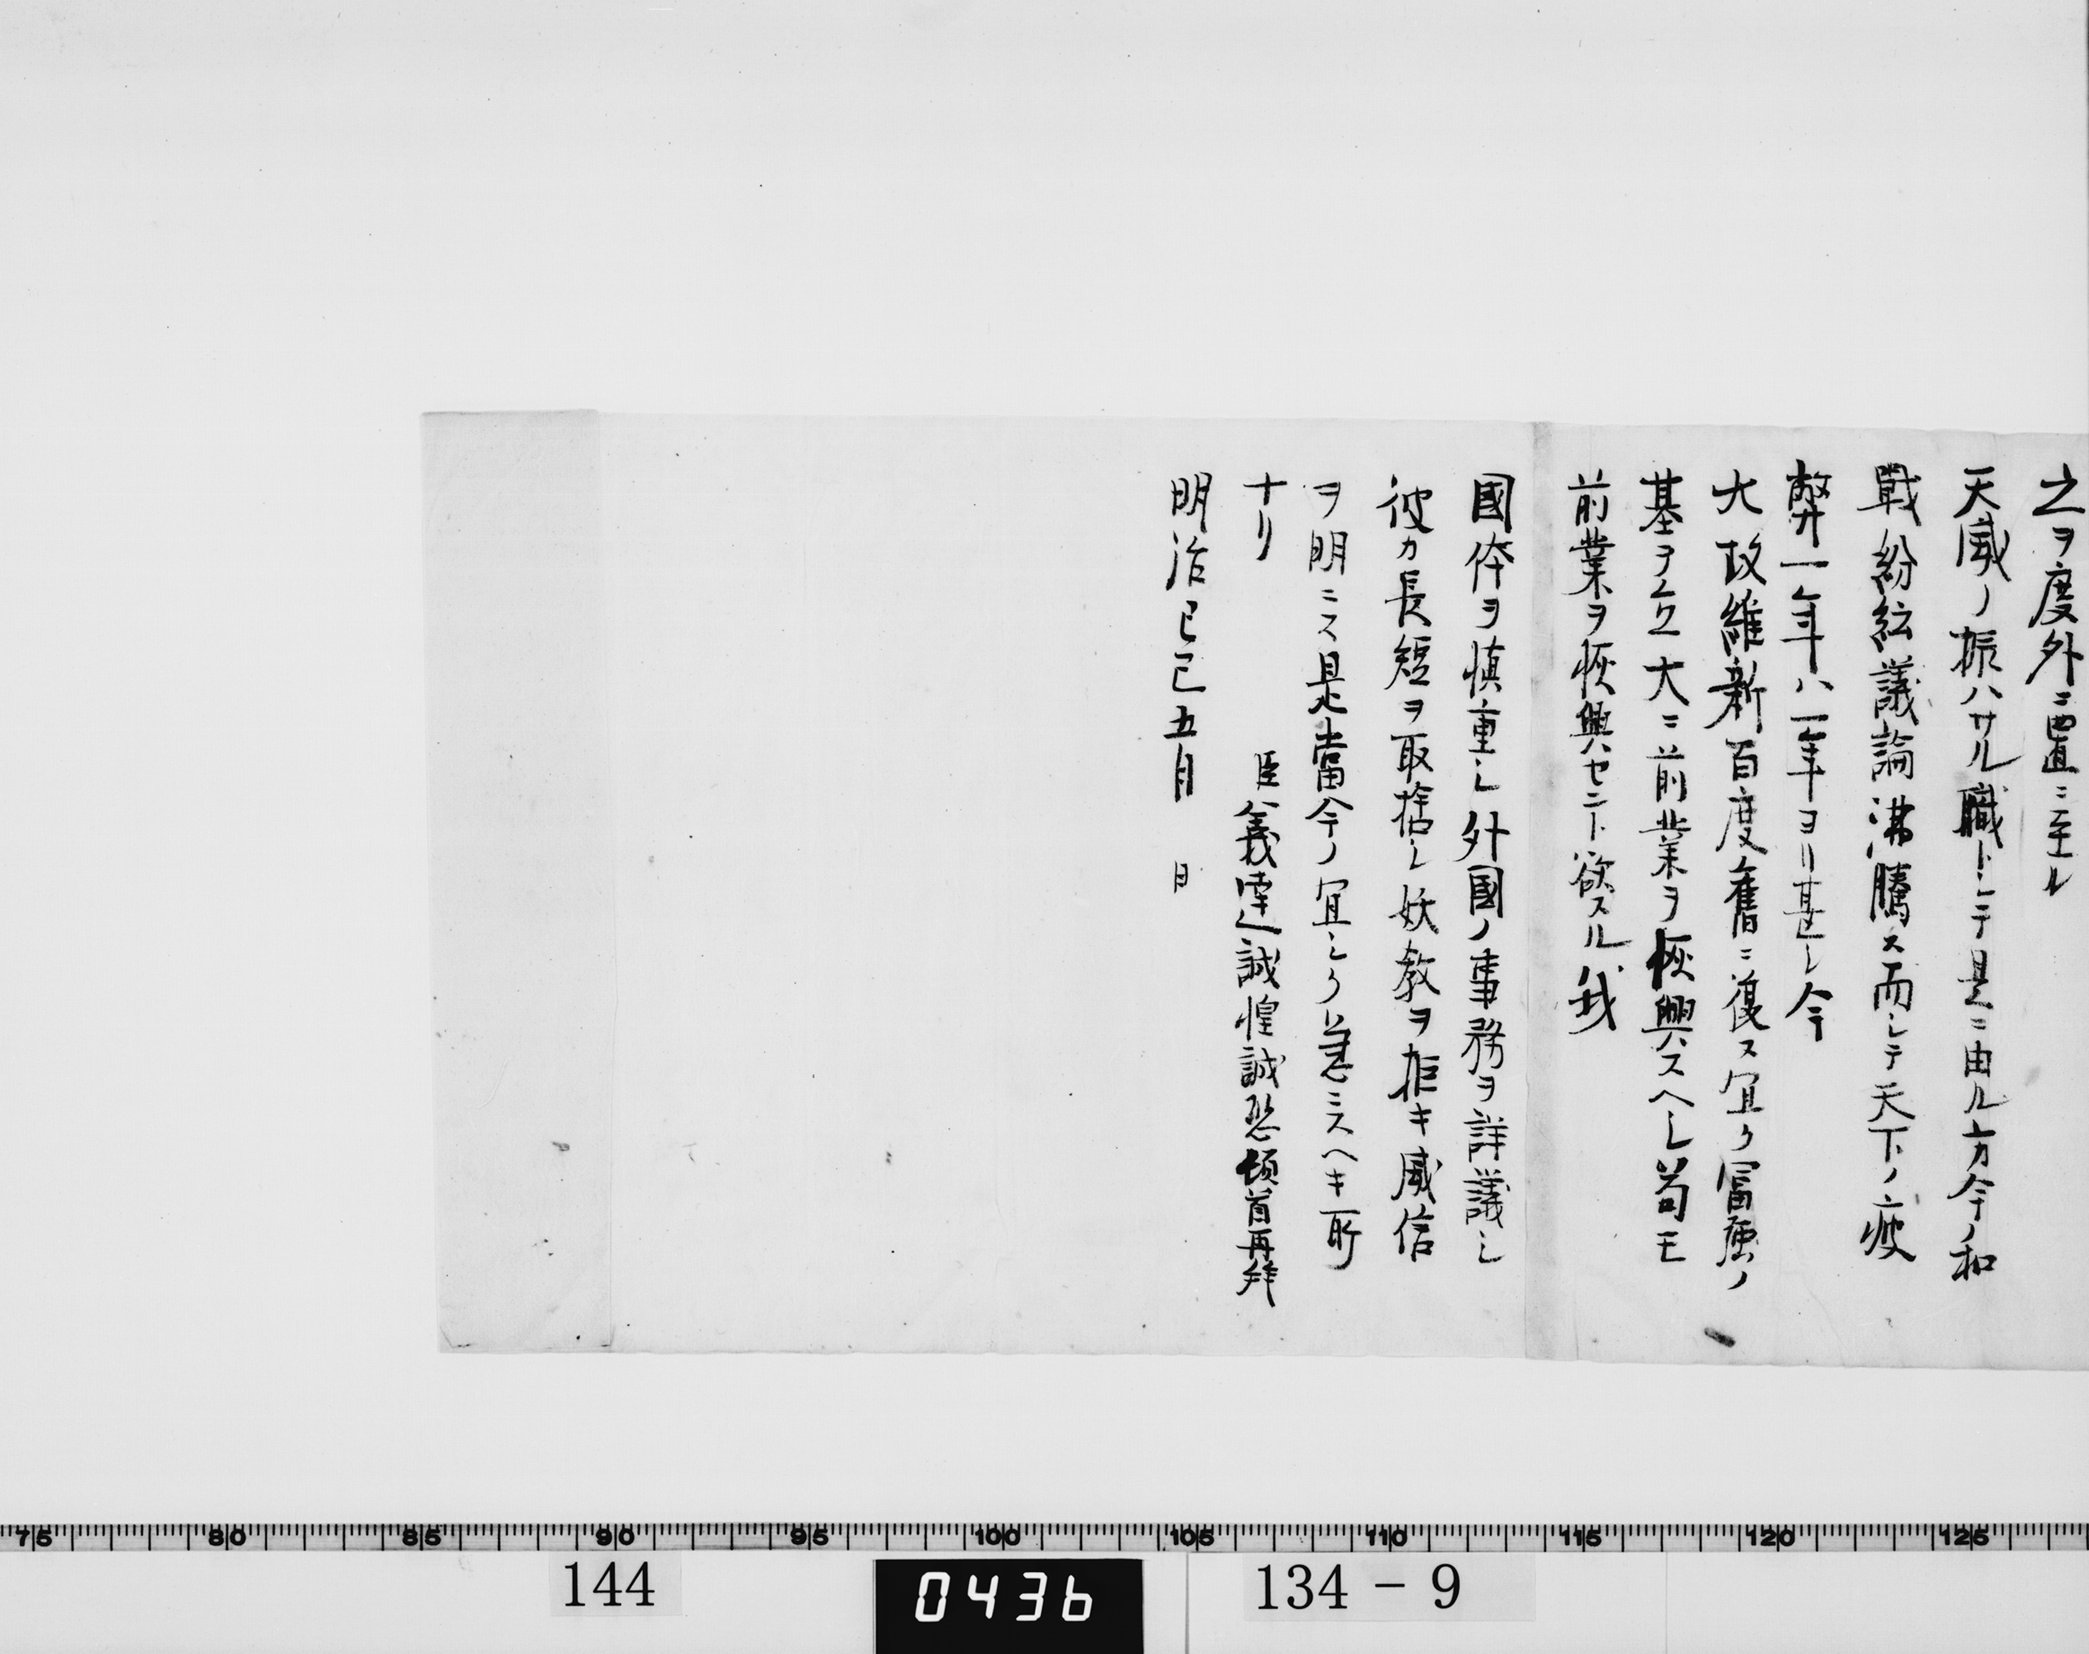 之ヲ度外ニ置ニ至ル
天威ノ振ハサル職トシテ是ニ由ル方今ノ和
戰紛紜議論沸騰ス而シテ天下ノ疲
弊一年ハ一年ヨリ甚シ今
大政維新百度舊ニ復ス宜ク冨强ノ
基ヲ立大ニ前業ヲ恢興スヘシ苟モ
前業ヲ恢興セント欲スル我
國体ヲ慎重シ外國ノ事務ヲ詳議シ
彼カ長短ヲ取捨シ妖教ヲ拒キ威信
ヲ明ニス是當今ノ宜シク急ニスヘキ所
ナリ
臣義達誠惶誠恐頓首再拜
明治己巳五月 日
75 80 85 90 95 100 105 110 115 120 125
144 0436 134-9